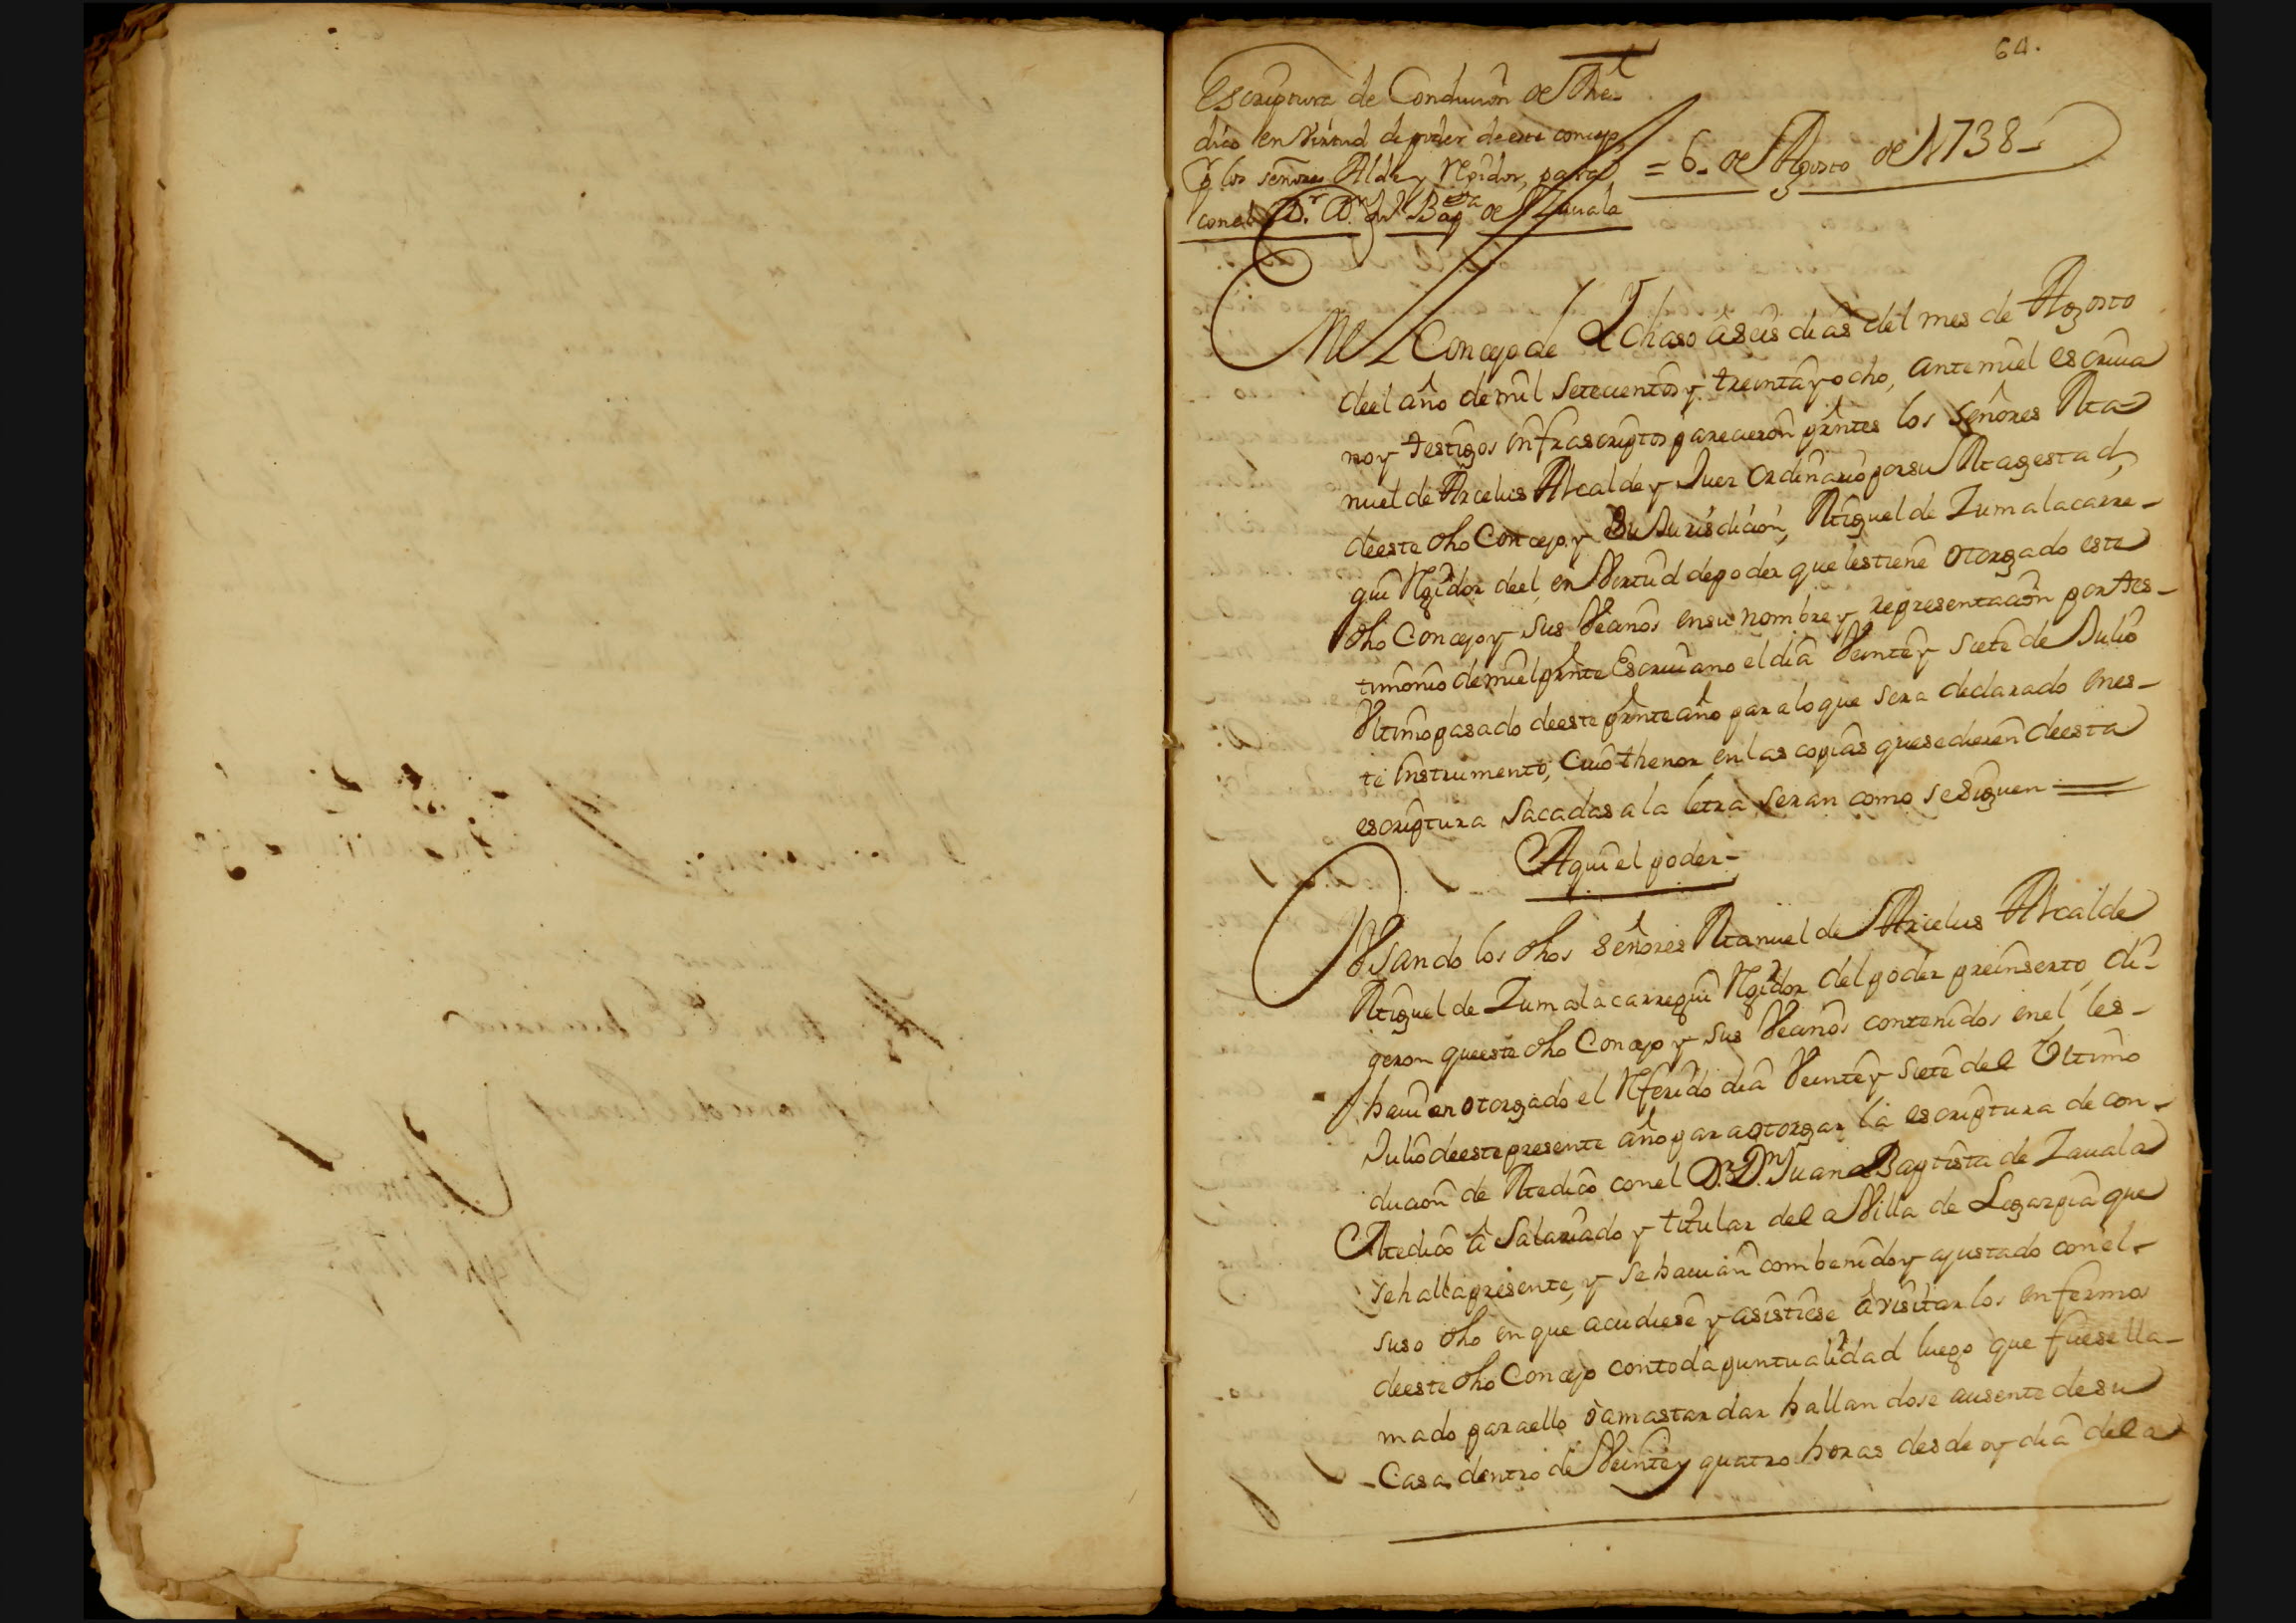 64.
Escriptura de Conducion de Me-
dico en Virtud de poder de este concejo,
p.r los señores Alde. y Rexidor, para
con el D.r D.n Ju.n Bap.ta de Zauala
= 6. de Agosto de 1738_
En el Concejo de Ychaso â seis dias del mes de Agosto
de el año de mil setecientos y treinta y ocho, ante mi el escriua
no y testigos infrascriptos parecieron pres.ntes los señores Ma=
nuel de Arcelus Alcalde y Juez Ordinario por su Magestad,
de este dho Concejo y su Jurisdicion, Miguel de Zumalacarre-
gui Regidor de el, en Virtud de poder que les tiene otorgado este
dho Concejo y sus Vecinos en su nombre y representacion por tes-
timonio de mi el press.nte Escriuano el dia Veinte y siete de Julio
Vltimo pasado de este press.nte año para lo que sera declarado en es-
te instrumento, cuio thenor en las copias que se dieren de esta
escriptura sacadas a la letra seran como se siguen =
Aqui el poder-
Vsando los dhos señores Manuel de Arcelus Alcalde
Miguel de Zumalacarregui Regidor del poder preinserto, di-
geron que este dho Concejo y sus Vecinos contenidos en el, les-
hauian otorgado el Referido dia Veinte y siete del Vltimo
Julio de este presente año para otorgar la escriptura de con-
ducion de Medico con el D.r D.n Juan Baptista de Zauala
Medico â salariado y titular de la Villa de Legazpia que
se halla presente, y se hauian combenido y ajustado con el-
suso dho en que acudiese y asistiese â visitar los enfermos
de este dho Concejo con toda puntualidad luego que fuese lla-
mado para ello ô a mas tardar hallandose ausente de su
Casa dentro de Veinte y quatro horas desde oy dia de la